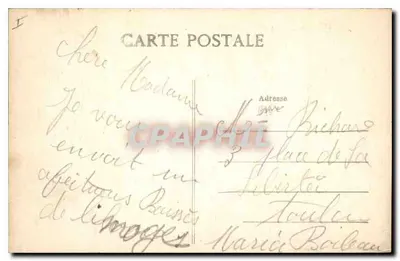 CARTE POSTALE
Chère Madame
Je vous
envoit un
Baisers
de limoges
Adresse
Richard
3 place de la
Liberté
Toulon
Maria Boileau
CPAPHIL.com